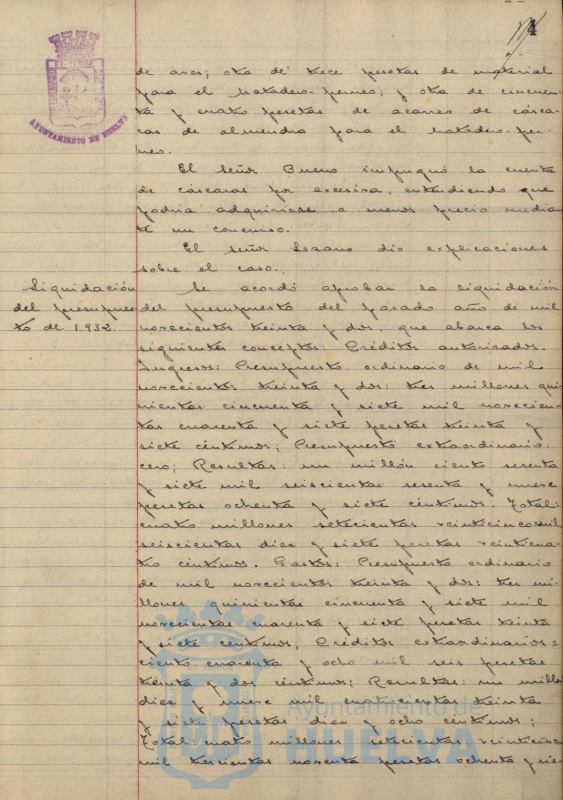 de aves; otra de trece pesetas de material
para el Matadero-perneo; y otra de cincuen-
ta y cuatro pesetas de acarreo de cásca-
ras de almendra para el Matadero-per-
neo.
El Señor Bueno impugnó la cuenta
de cáscaras por excesiva, entendiendo que
podría adquirirse a menos precio median-
te un concurso.
El Señor Lozano dio explicaciones
sobre el caso.
Liquidación
del presupues-
to de 1932.
Se acordó aprobar la liquidación
del presupuesto del pasado año de mil
novecientos treinta y dos, que abarca los
siguientes conceptos: Créditos autorizados.
Ingresos: Presupuesto ordinario de mil
novecientos treinta y dos: tres millones qui-
nientas cincuenta y siete mil novecien-
tas cuarenta y siete pesetas treinta y
siete céntimos; Presupuesto extraordinario:
cero; Resultas: un millón ciento sesenta
y siete mil seiscientas sesenta y nueve
pesetas ochenta y siete céntimos. Total:
cuatro millones setecientas veinticinco mil
seiscientas diez y siete pesetas veinticua-
tro céntimos. Gastos: Presupuesto ordinario
de mil novecientos treinta y dos: tres mi-
llones quinientas cincuenta y siete mil
novecientas cuarenta y siete pesetas treinta
y siete céntimos; Créditos extraordinarios:
ciento cuarenta y ocho mil seis pesetas
treinta y dos céntimos; Resultas: un millón
diez y nueve mil cuatrocientas treinta
y siete pesetas diez y ocho céntimos;
Total: cuatro millones setecientas veinticinco
mil trescientas noventa pesetas ochenta y sie-
AYUNTAMIENTO DE HUELVA
Ayuntamiento de
HUELVA